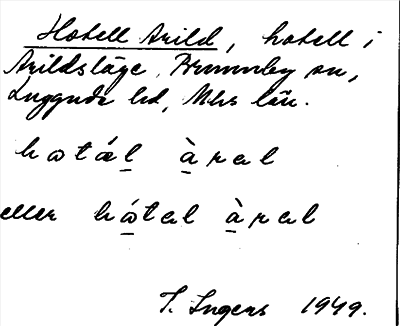 Hotell Arild, hotell i
Arildsläge, Brunnby sn,
Luggude hd, Mhs län.
hωtæ̀l̲ à̲ral
eller hώ̲tal à̲ral
T. Ingers 1949.